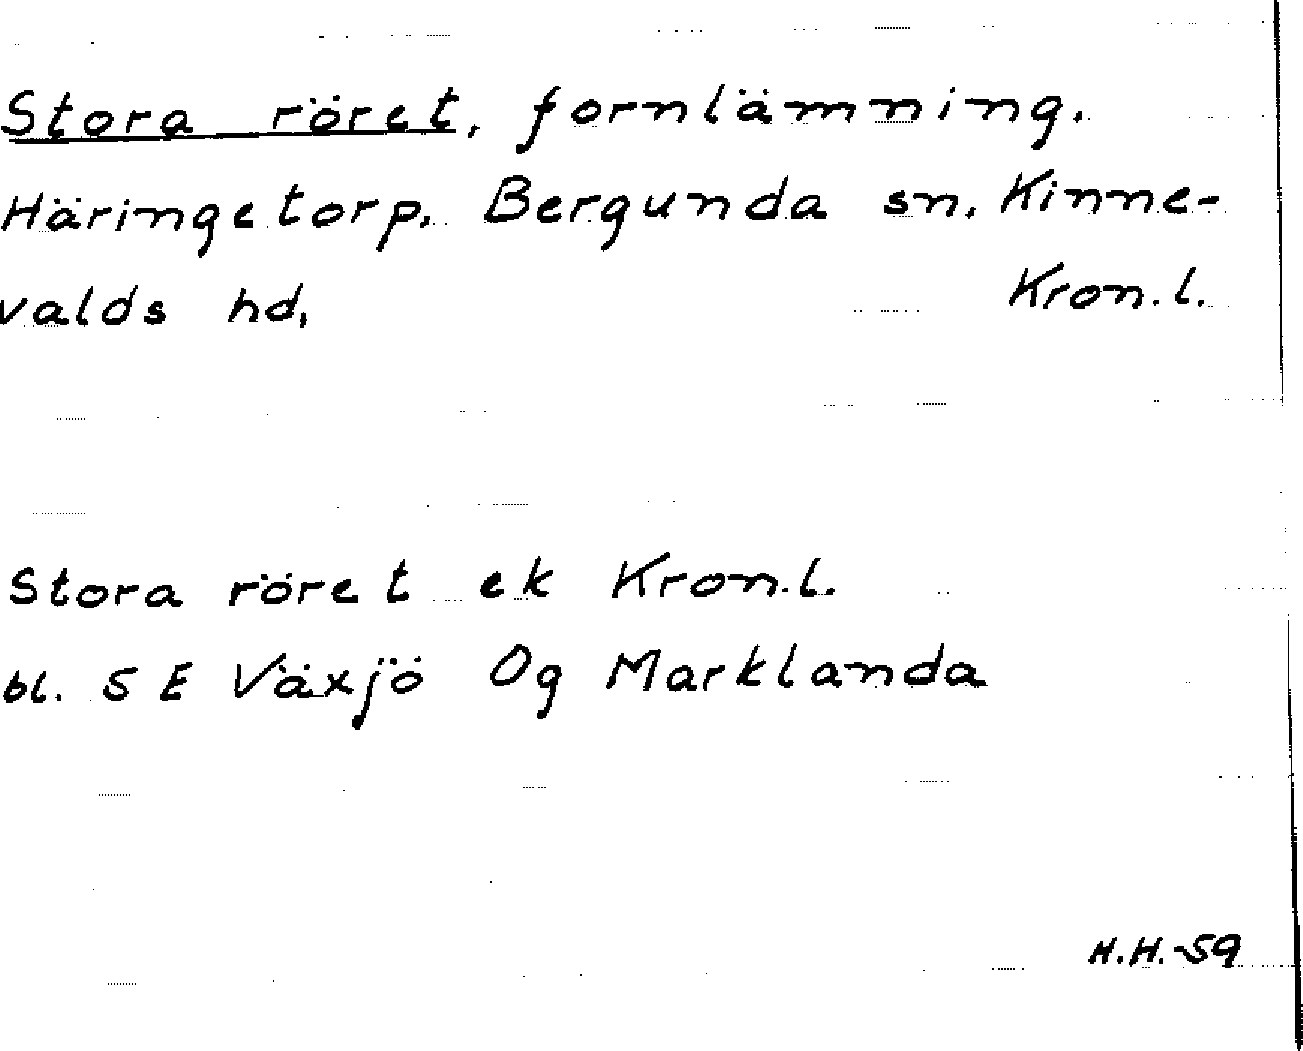 Stora röret, fornlämning.
Häringetorp. Bergunda sn. Kinne-
valds hd, Kron.l.
Stora röret ek Kron.l.
bl. S E Växjö Og Marklanda
H.H.-59